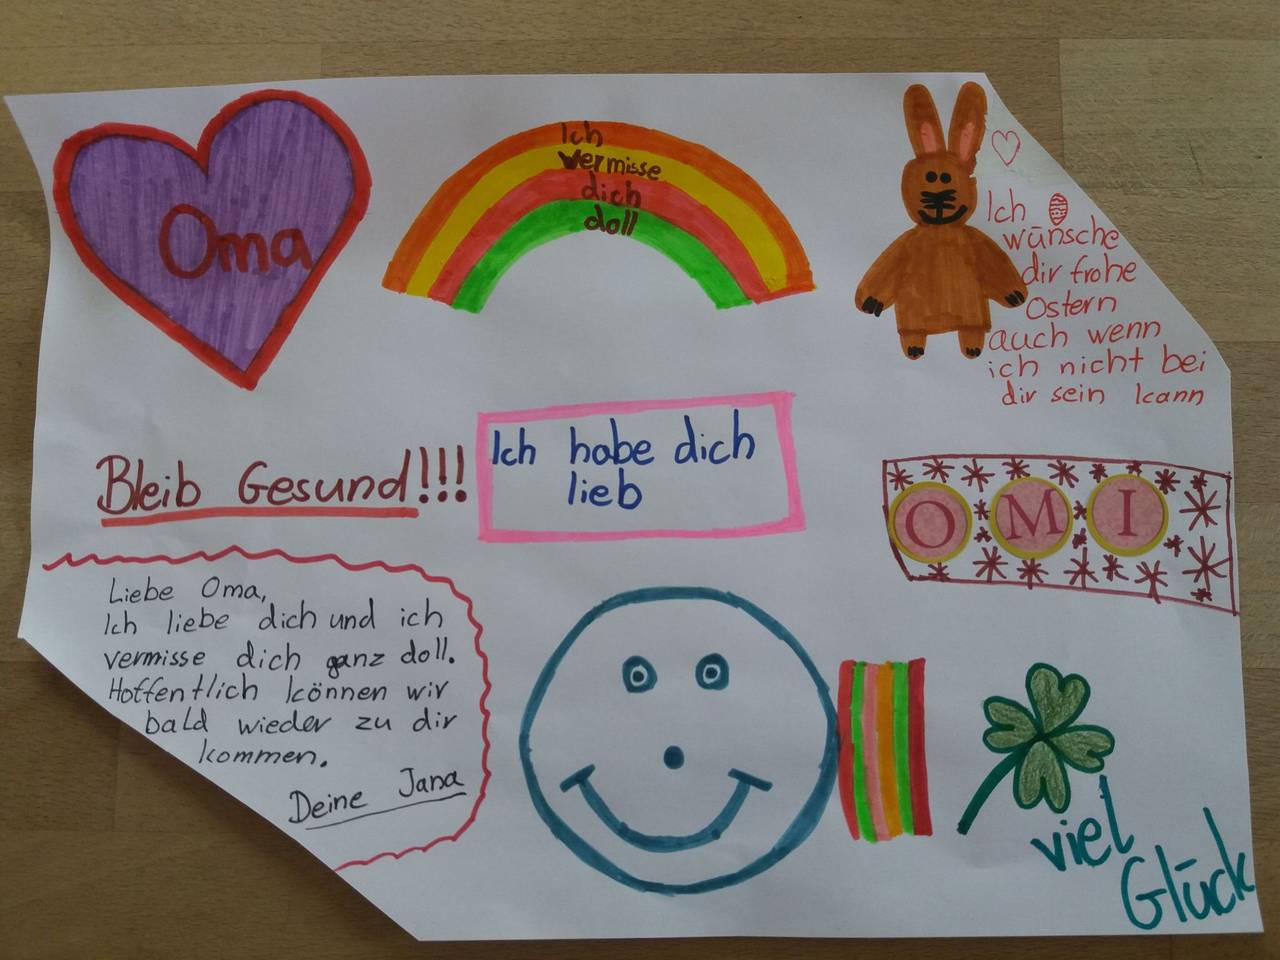 Oma
Ich
vermisse
dich
doll
Ich
wünsche
dir frohe
Ostern
auch wenn
ich nicht bei
dir sein kann
Bleib Gesund!!!
Ich habe dich
lieb
OMI
Liebe Oma,
Ich liebe dich und ich
vermisse dich ganz doll.
Hoffentlich können wir
bald wieder zu dir
kommen.
Deine Jana
viel
Glück